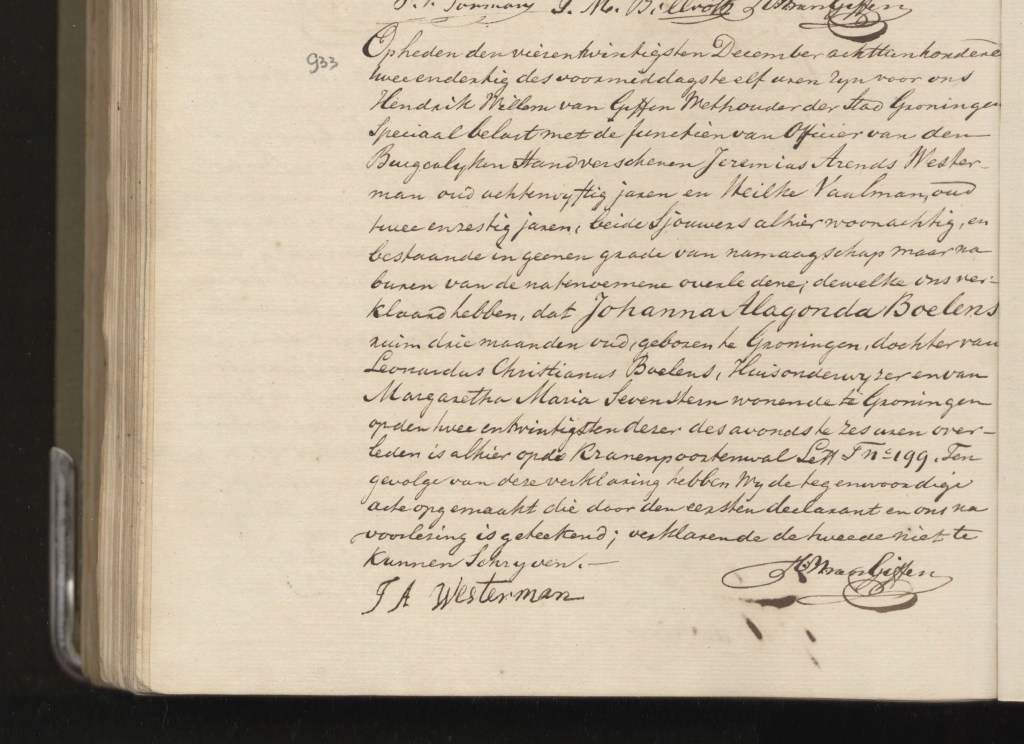 J. M. Billroth HWvanGiffen
933
Opheden den vierentwintigsten December achttienhonderd
twee endertig des voormiddags te elf uren zyn voor ons
Hendrik Willem van Giffen Wethouder der Stad Groningen
Speciaal belast met de functiën van Officier van den
Burgerlyken Stand verschenen Jeremias Arends Wester-
man oud achtenvyftig jaren en Heilke Vaalman, oud
twee enzestig jaren, beide Sjouwers alhier woonachtig, en
bestaande in geenen grade van namaagschap maar na
buren van de natenoemene overledene; dewelke ons ver-
klaard hebben, dat Johanna Alagonda Boelens
ruim drie maanden oud, geboren te Groningen, dochter van
Leonardus Christianus Boelens, Huisonderwyzer en van
Margaretha Maria Sevenstern wonende te Groningen
op den twee entwintigsten dezer des avonds te zes uren over-
leden is alhier op de Kranenpoortenwal Lett F No 199. Ten
gevolge van deze verklaring hebben Wy de tegenwoordige
acte opgemaakt die door den eersten declarant en ons na
voorlezing is geteekend; verklarende de tweede niet te
kunnen Schryven.—
HWvanGiffen
J A Westerman